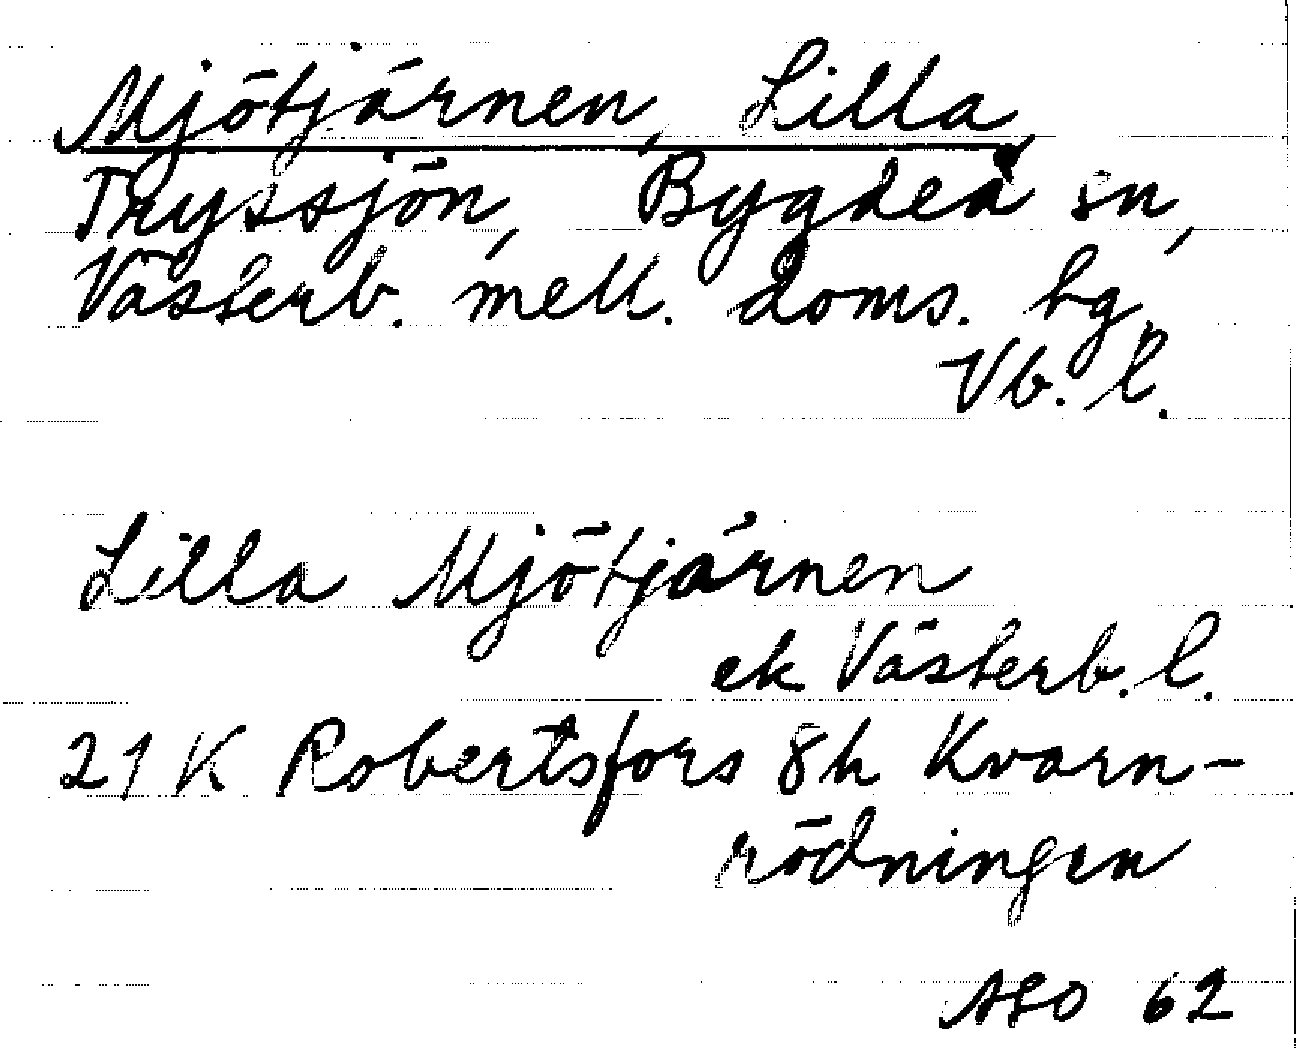 Mjötjärnen, Lilla,
Tryssjön, Bygdeå sn,
Västerb. mell. doms. hg
Vb. l.
Lilla Mjötjärnen
ek Västerb. l.
21 K Robertsfors 8h Kvarn-
rödningen
ASO 62